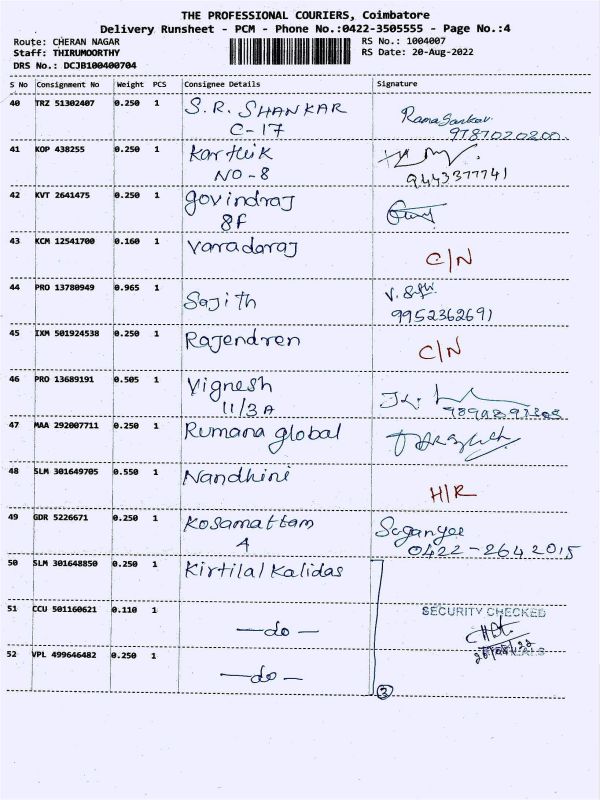 THE PROFESSIONAL COURIERS, Coimbatore
Delivery Runsheet - PCM - Phone No.:0422-3505555 - Page No.:4
Route: CHERAN NAGAR
Staff: THIRUMOORTHY
DRS No.: DCJB100400704
RS No.: 1004007
RS Date: 20-Aug-2022
S No Consignment No Weight PCS Consignee Details Signature
40 TRZ 51302407 0.250 1 S.R. SHANKAR
C-17
RamaSankar
9787020200
41 KOP 438255 0.250 1 Karthik
NO-8
9443377741
42 KVT 2641475 0.250 1 govindraj
8F
43 KCM 12541700 0.160 1 Varadaraj
C/N
44 PRO 13780949 0.965 1 Sajith
9952362691
45 IXM 501924538 0.250 1 Rajendren
C/N
46 PRO 13689191 0.505 1 Vignesh
11/3A
47 MAA 292007711 0.250 1 Rumana global
48 SLM 301649705 0.550 1 Nandhini
H/R
49 GDR 5226671 0.250 1 Kosamattam
A
0422-2642015
50 SLM 301648850 0.250 1 Kirtilal Kalidas
51 CCU 501160621 0.110 1 —do—
SECURITY CHECKED
52 VPL 499646482 0.250 1 —do—
3